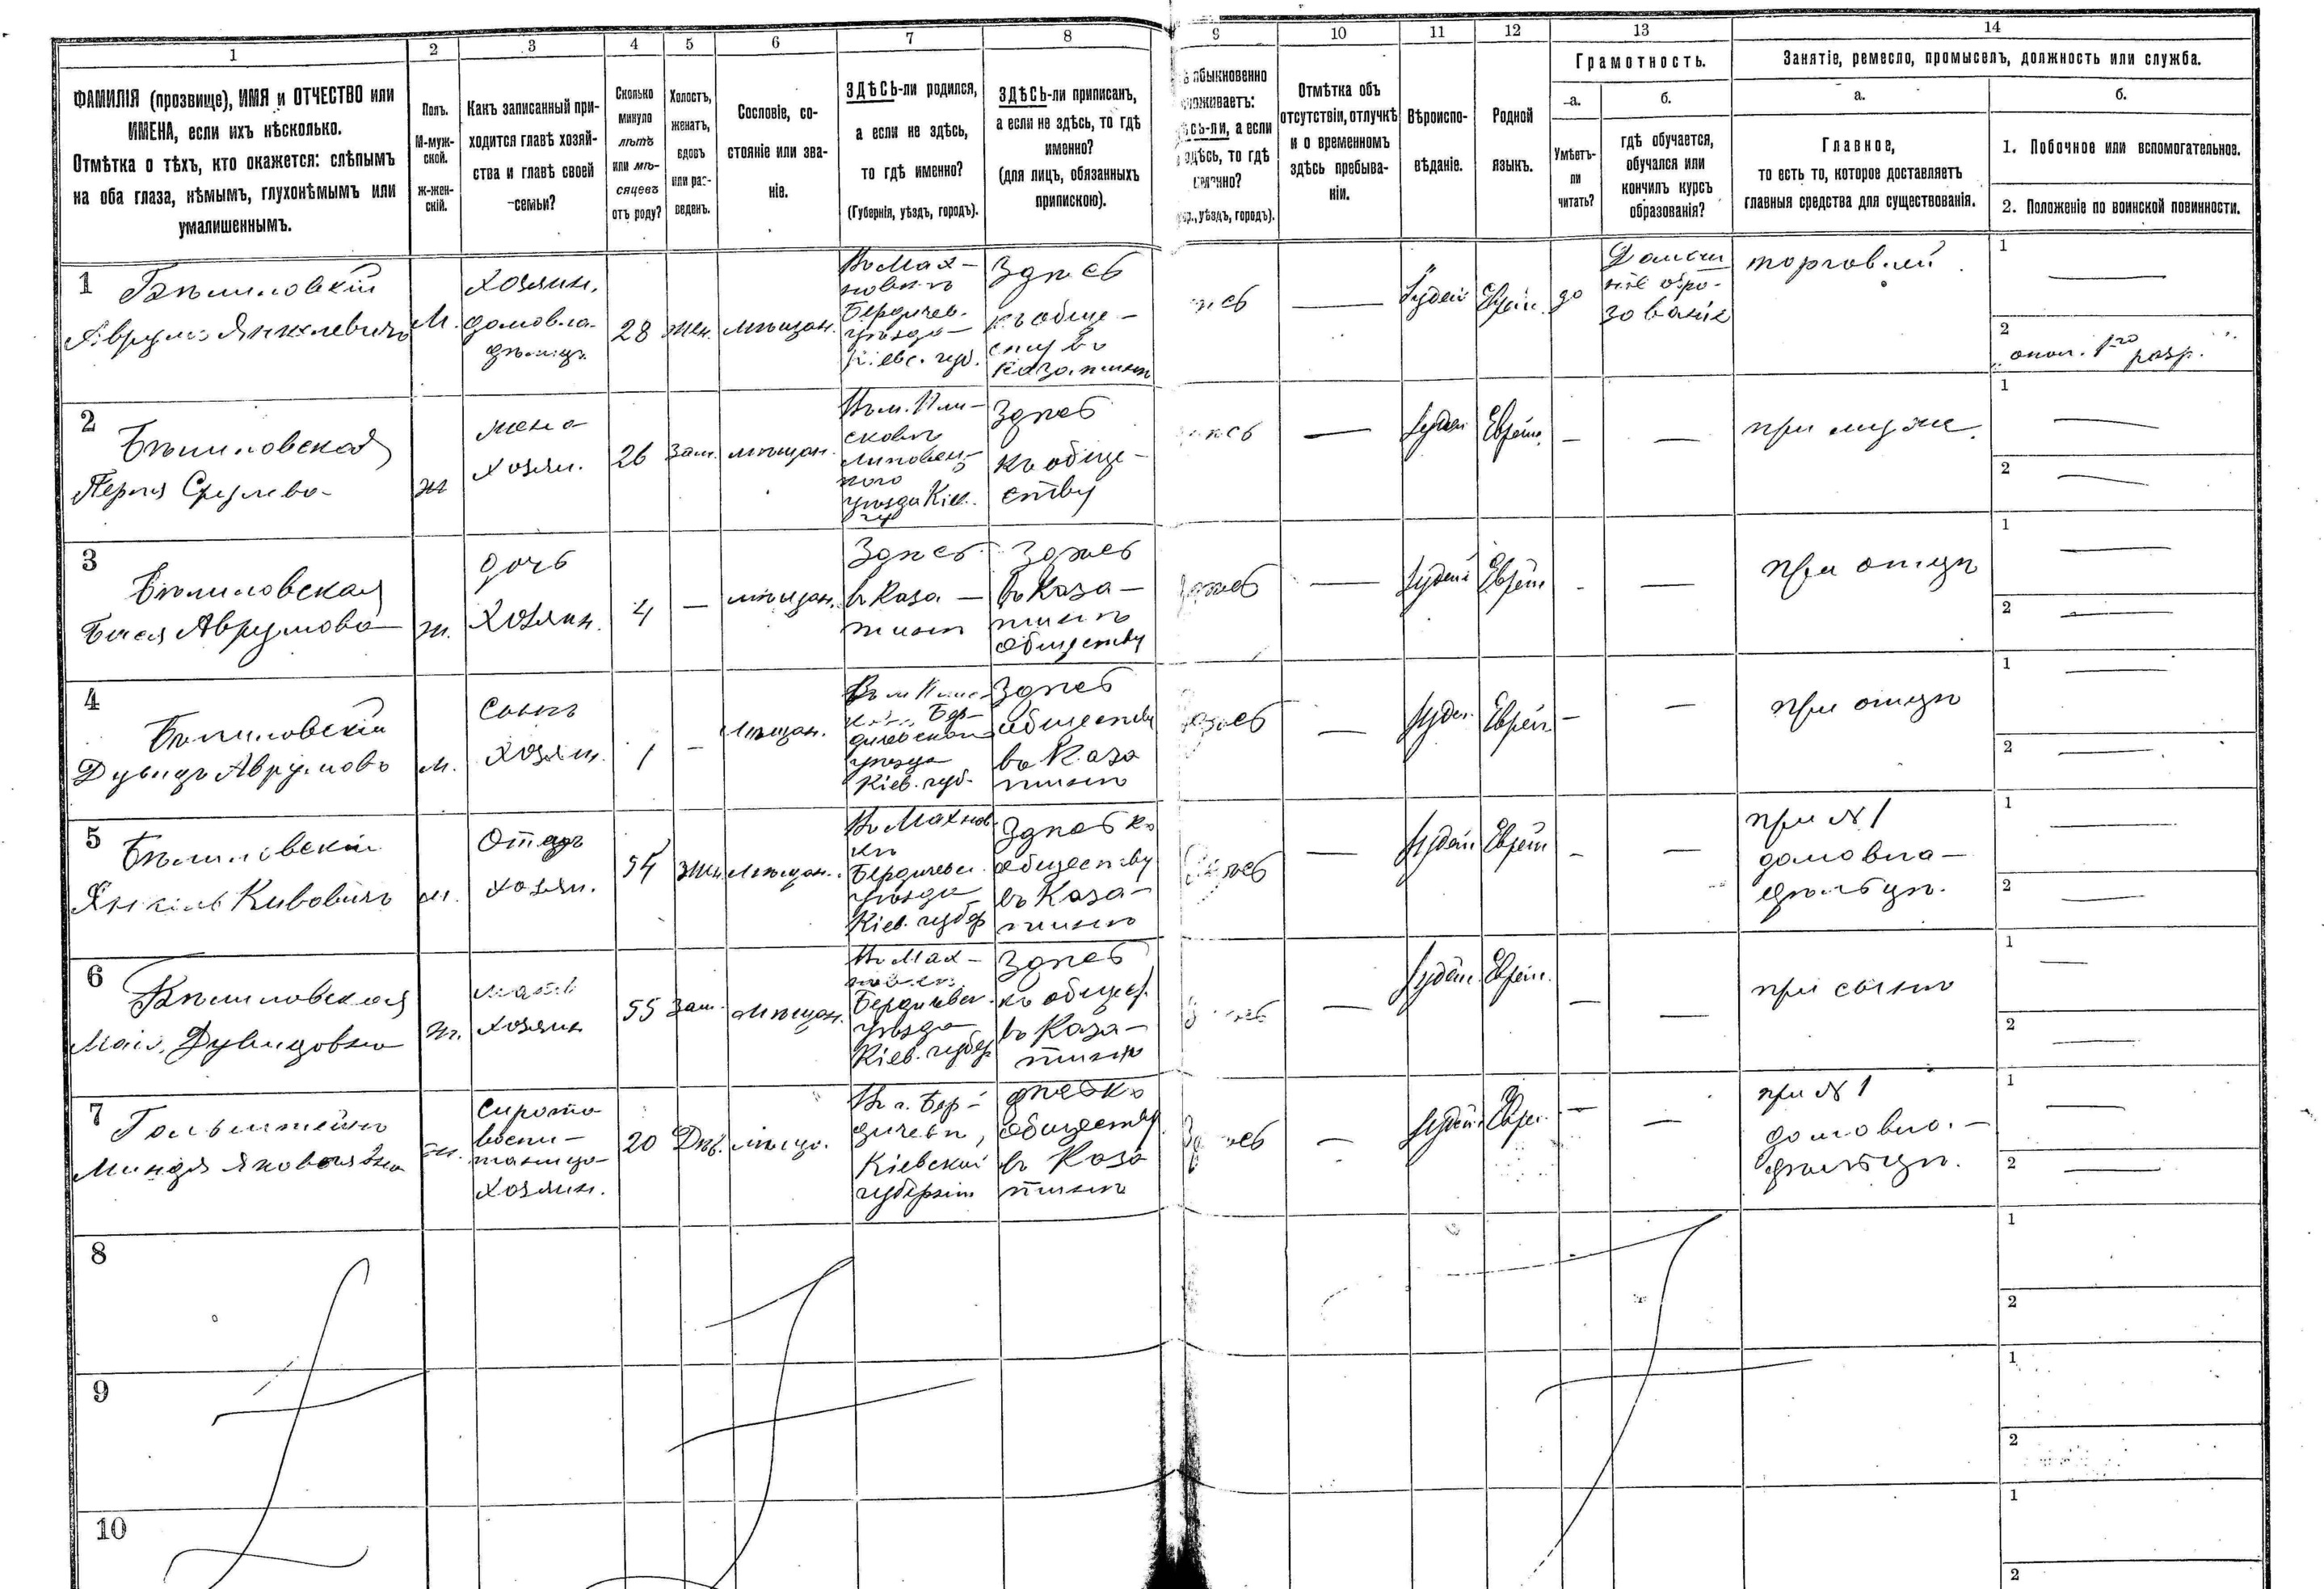 1
2
3
4
5
6
7
8
9
10
11
12
13
14
ФАМИЛІЯ (прозвище), ИМЯ и ОТЧЕСТВО или
ИМЕНА, если ихъ нѣсколько.
Отмѣтка о тѣхъ, кто окажется: слѣпымъ
на оба глаза, нѣмымъ, глухонѣмымъ или
умалишеннымъ.
Полъ.
М-муж-
ской.
Ж-жен-
скій.
Какъ записанный при-
ходится главѣ хозяй-
ства и главѣ своей
семьи?
Сколько
минуло
лѣтъ
или мѣ-
сяцевъ
отъ роду?
Холостъ,
женатъ,
вдовъ
или раз-
веденъ.
Сословіе, со-
стояніе или зва-
ніе.
ЗДѢСЬ-ли родился,
а если не здѣсь,
то гдѣ именно?
(Губернія, уѣздъ, городъ).
ЗДѢСЬ-ли приписанъ,
а если не здѣсь, то гдѣ
именно?
(для лицъ, обязанныхъ
припискою).
обыкновенно
а если
то гдѣ
уѣздъ, городъ).
Отмѣтка объ
отсутствіи, отлучкѣ
и о временномъ
здѣсь пребыва-
ніи.
Вѣроиспо-
вѣданіе.
Родной
языкъ.
Грамотность.
а.
Умѣетъ-
ли
читать?
б.
гдѣ обучается,
обучался или
кончилъ курсъ
образованія?
Занятіе, ремесло, промыселъ, должность или служба.
а.
Главное,
то есть то, которое доставляетъ
главныя средства для существованія.
б.
1. Побочное или вспомогательное.
2. Положеніе по воинской повинности.
1
Аврумъ Янкелевичъ
М.
Хозяин.
домовла-
28
Жен.
мѣщан.
Бердичев.
уѣзда
Здѣсь
къ обще-
Іудей
Еврей.
да
зованіе
торговлей
1
2
1го разр.
2
Бѣлиловская
Ж
жена
хозяи.
26
Зам.
мѣщан.
уѣзда Кіев.
Здѣсь
къ обще-
ству
Іудей
Еврей.
при мужѣ.
1
2
3
Бѣлиловская
Бася Аврумова
Ж.
дочь
Хозяин.
4
мѣщан.
Здѣсь
в Каза-
тинѣ
Здѣсь
въ Каза-
тинѣ
обществу
Здѣсь
Іудей
Еврей
при отцѣ
1
2
4
Бѣлиловскій
Дувидъ Аврумовъ
М.
Сынъ
Хозяин.
1
мѣщан.
Бер-
дичевскаго
уѣзда
Кіев. губ.
Здѣсь
обществу
въ Каза
тинѣ
Іудей
Еврей
при отцѣ
1
2
5
Бѣлиловскій
М.
Отецъ
хозяи.
54
Жен.
мѣщан.
Въ Махнов-
кѣ
Бердичевс.
уѣзда
Кіев. губер
Здѣсь къ
обществу
въ Каза-
тинѣ
Іудей
Еврей
при №1
домовла-
дѣльцѣ.
1
2
6
Бѣлиловская
Дувидовна
Ж.
мать
Хозяин
55
Зам.
мѣщан.
Въ Мах-
Бердичев.
уѣзда
Кіев. губер
Здѣсь
къ общес.
въ Каза-
тинѣ
Іудей
Еврей.
при сынѣ
1
2
7
Гольдштейнъ
Ж.
Сирота
воспи-
таница
Хозяин.
20
Дѣв.
мѣща.
Въ г. Бер-
дичевѣ,
Кіевской
губерніи
къ
обществу
въ Каза
тинѣ
Іудей
Еврей.
при №1
домовла-
дѣльцѣ.
1
2
8
1
2
9
1
2
10
1
2